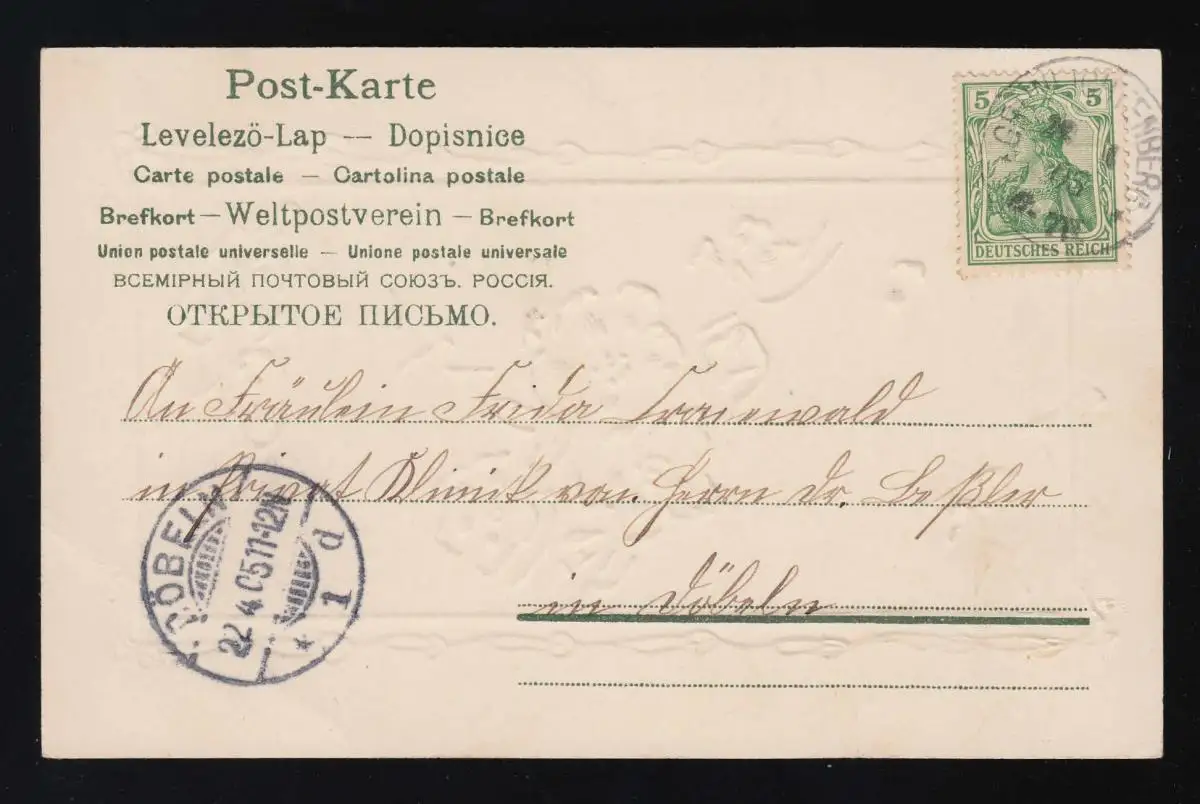 Post-Karte
Levelezö-Lap — Dopisnice
Carte postale — Cartolina postale
Brefkort — Weltpostverein — Brefkort
Union postale universelle — Unione postale universale
ВСЕМІРНЫЙ ПОЧТОВЫЙ СОЮЗЪ. РОССІЯ.
ОТКРЫТОЕ ПИСЬМО.
5 5
DEUTSCHES REICH
An Fräulein Frida
in Privat Klinik von Herrn Dr. Beßler
in Döbeln
DÖBELN
22.4.05.11-12N.
* 1 d